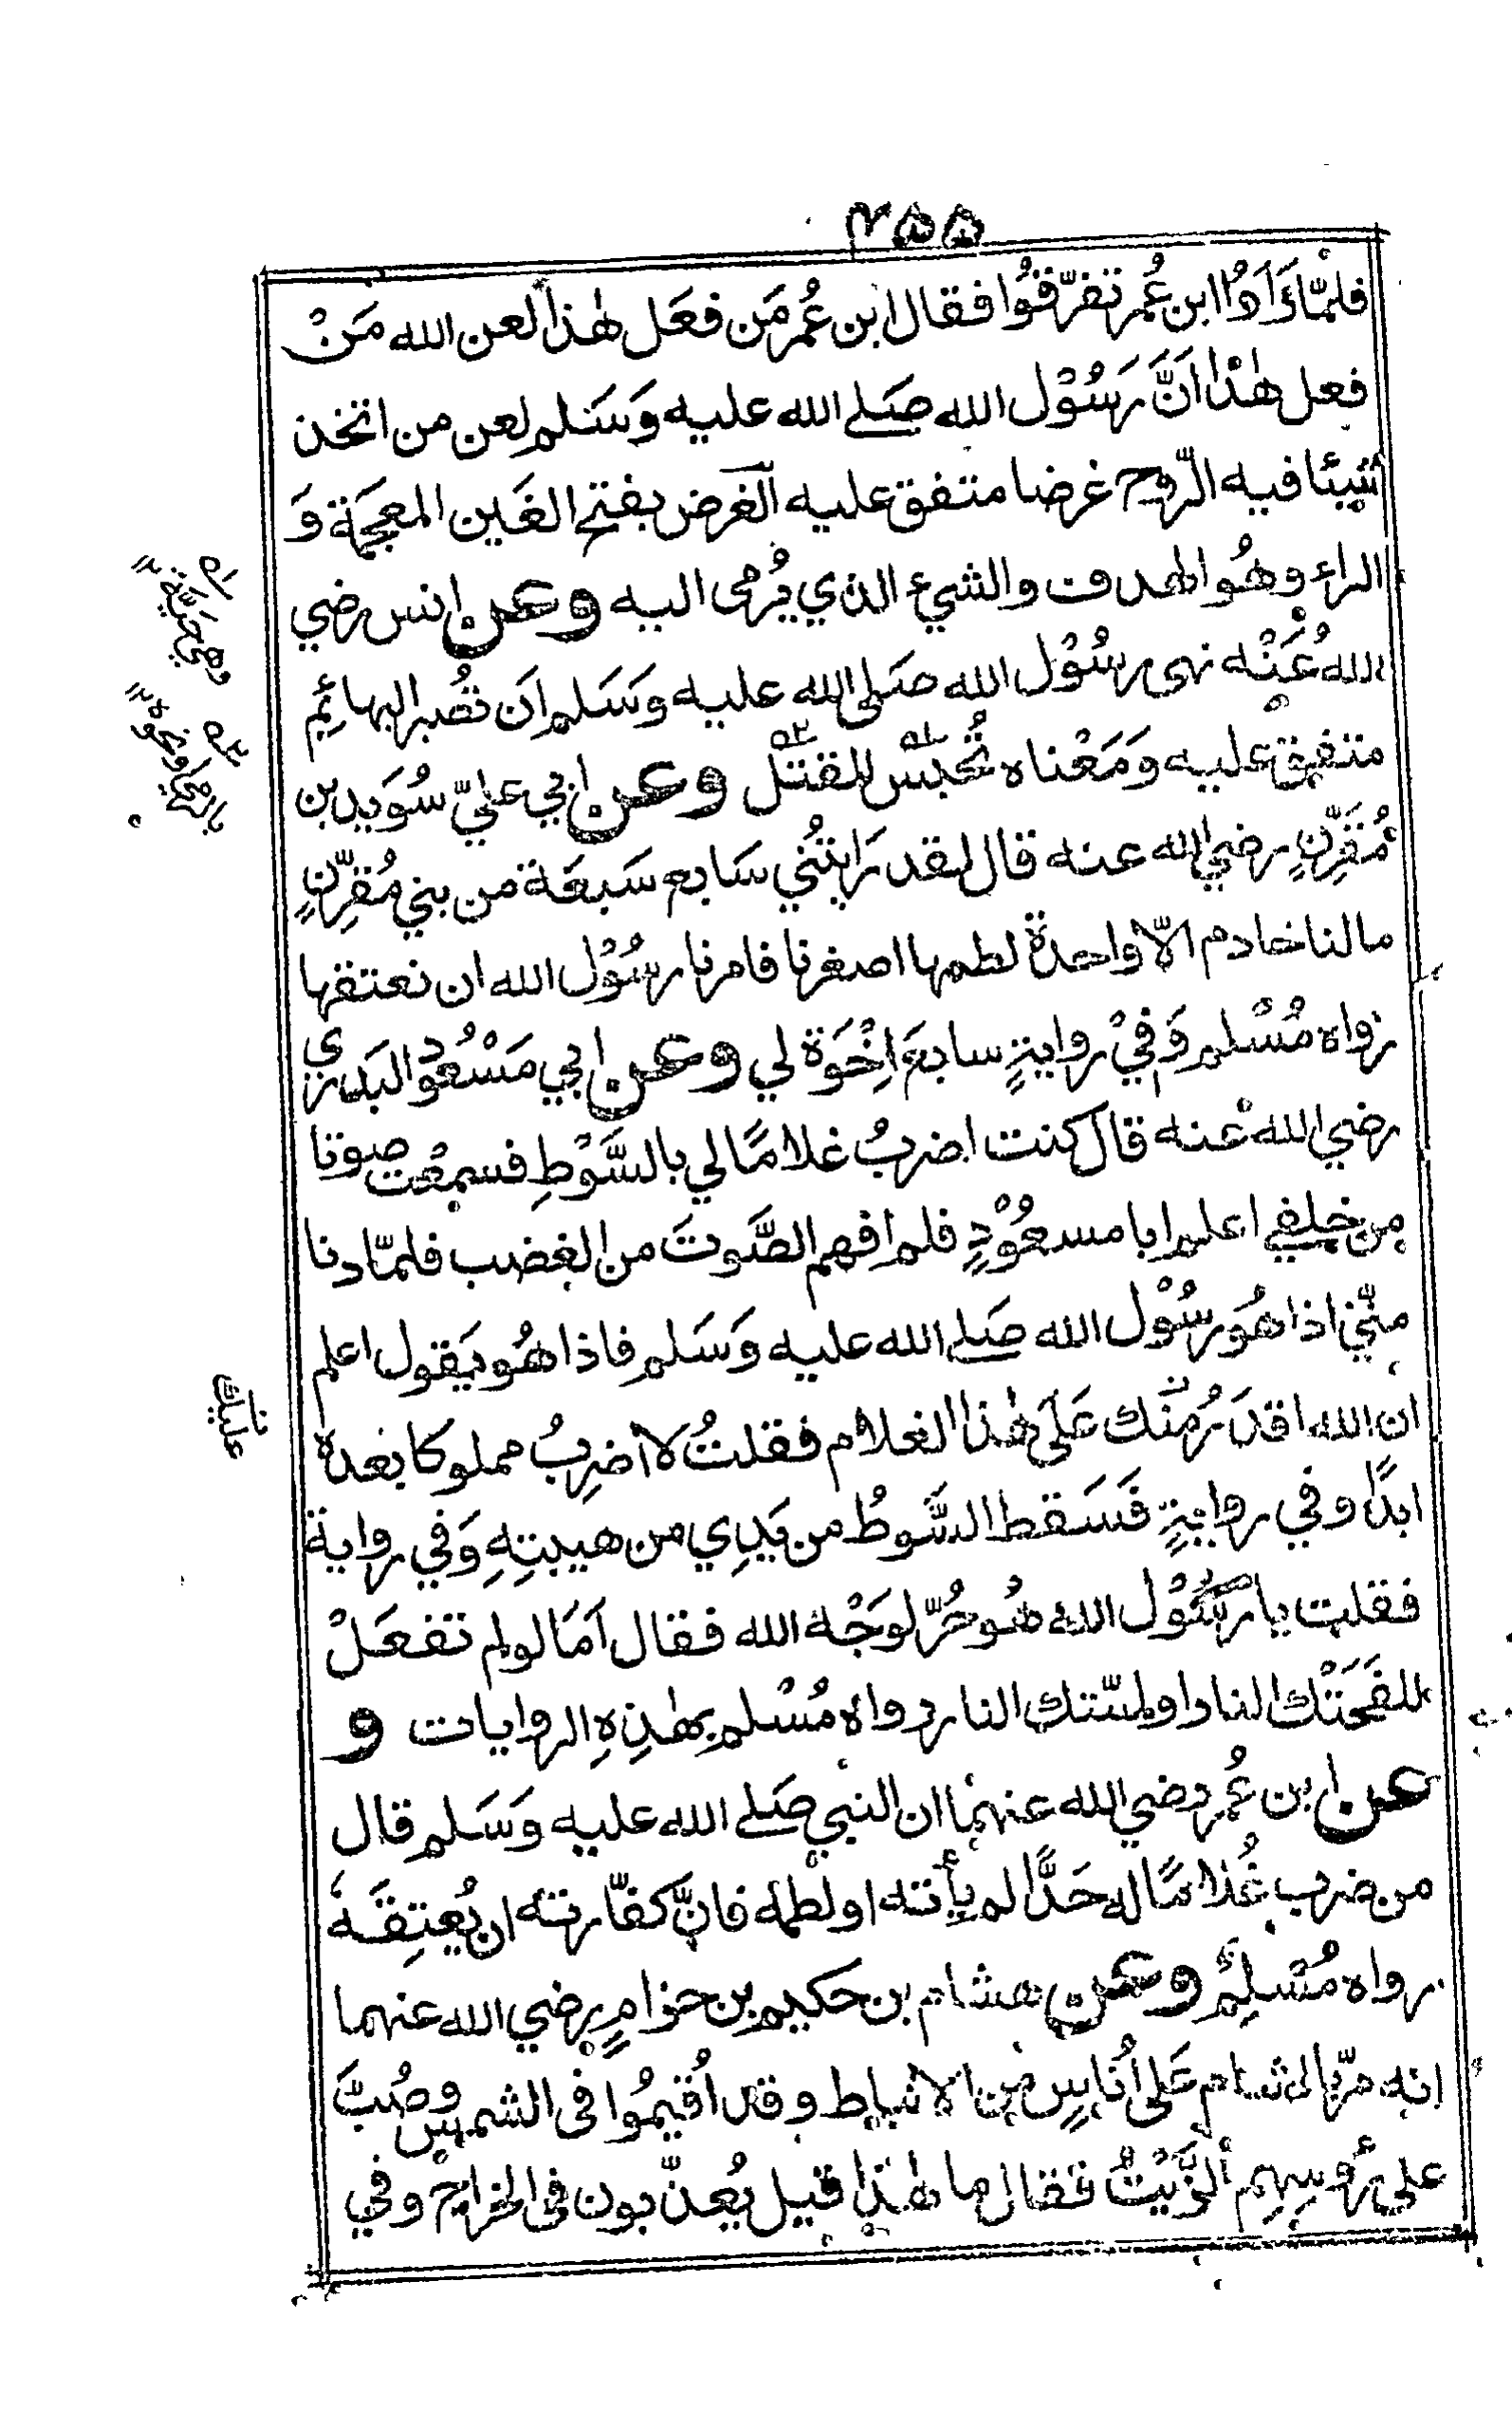 ۲۵۵
فلمّا رَاَوُا ابن عُمر تفرّقُوا فقال ابن عُمر مَن فعَل هٰذا لعن الله مَنْ
فعل هٰذا اَنَّ رَسُوْل الله صَلے الله عليه وَسَلم لعن من اتخذ
شيئا فيه الرّوح غرضا متفق عليه الغَرض بفتح الغَين المعجمَة وَ
الراء وهُو الهدف والشيء الذي يُرمى اليه وعن انس رضي
اللهُ عَنْه نهى رسُوْل الله صَلى الله عليه وَسَلم اَن تُصبر البهائِم
متفق عليه وَمَعْناه تُحْبَس للقتل وعن ابي عليّ سُوَيد بن
مُقَرِّنٍ رضي الله عنه قال لقد رَايتُني سَابع سَبعَة من بني مُقرِّنٍ
ما لنا خادم الّا واحدة لطمها اصغرنا فامرنا رسُوْل الله ان نعتقها
رواه مُسْلم وَفيْ روايةٍ سابعَ اِخْوَة لي وعن ابي مَسْعُود البَدري
رضي الله عنه قال كنت اضربُ غلامًا لي بالسَّوْطِ فسمعْت صوتا
من خلفي اعلم ابا مسعُوْدٍ فلم افهم الصَّوتَ من الغضب فلمّا دنا
منّي اذا هُو رسُوْل الله صَلے الله عليه وَسَلم فاذا هُو يَقول اعلم
ان الله اقدَرُ مِنْك عَلَى هٰذا الغلام فقلتُ لا اَضرِبُ مملوكا بعده
ابدًا وفي روايةٍ فَسَقط السَّوطُ من يَدِي من هيبتِهِ وَفي رواية
فقلت يا رسُوْل الله هُو حُرّ لوَجْه الله فقال اَمَا لو لم تفعَلْ
للفَحَتْك النار او لمسّتك النار رواه مُسْلم بهٰذِهِ الروايات و
عن ابن عُمر رضي الله عنهُما ان النبي صَلے الله عليه وَسَلم قال
من ضرب غُلامًا له حَدًّا لم يأته او لطمه فانَّ كفّارته ان يُعتِقَهُ
رواه مُسْلِمٌ وعن هشام بن حكيم بن حزامٍ رضي الله عنهما
انه مرّ بالشام عَلى اُناسٍ من الانباط وقد اُقيمُوا فى الشمس وصُبَّ
على رُؤُسِهِم الزَّيْتُ فقال ما هٰذا قيل يُعذّبون فى الخراج وفي
ا؎
وهي حَيَّة ۱۲
۲؎
عليك